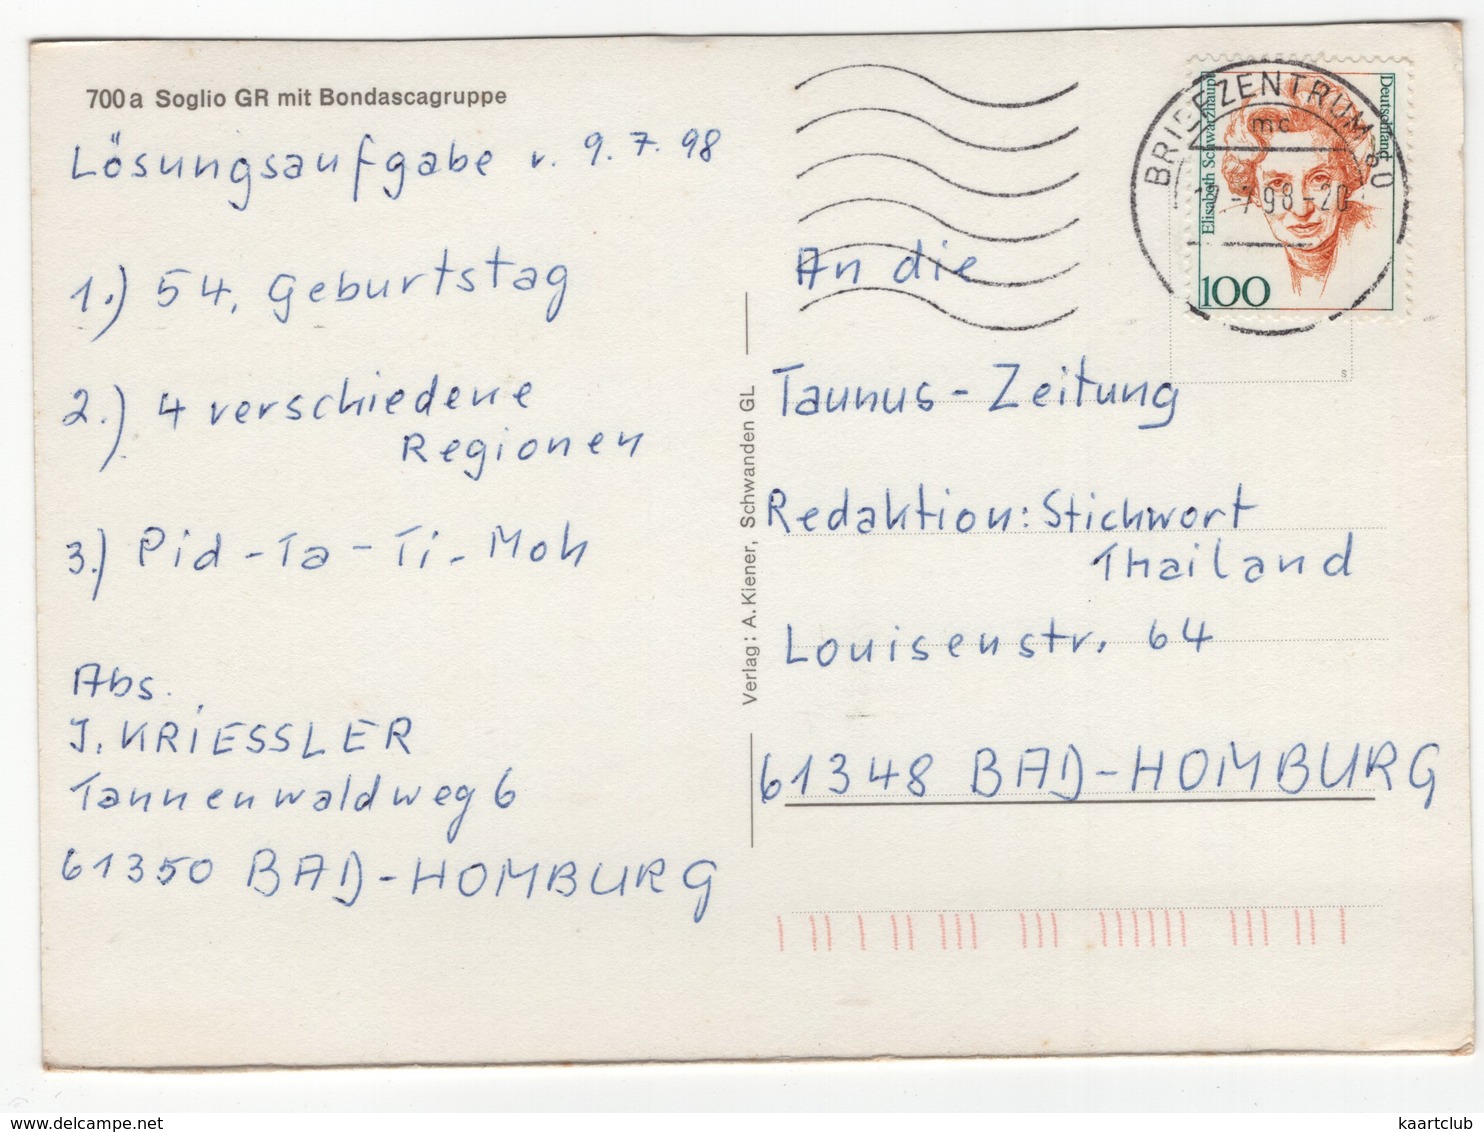 700 a Soglio GR mit Bondascagruppe
Lösungsaufgabe v. 9.7.98
1.) 54. Geburtstag
2.) 4 verschiedene
Regionen
3.) Pid-Ta-Ti-Moh
Abs.
J. KRIESSLER
Tannenwaldweg 6
61350 BAD-HOMBURG
Verlag: A. Kiener, Schwanden GL
BRIEFZENTRUM
mc
-7.98-20
Deutschland
Elisabeth Schwarzhaupt
100
s
An die
Taunus-Zeitung
Redaktion: Stichwort
Thailand
Louisenstr. 64
61348 BAD-HOMBURG
kaartclub